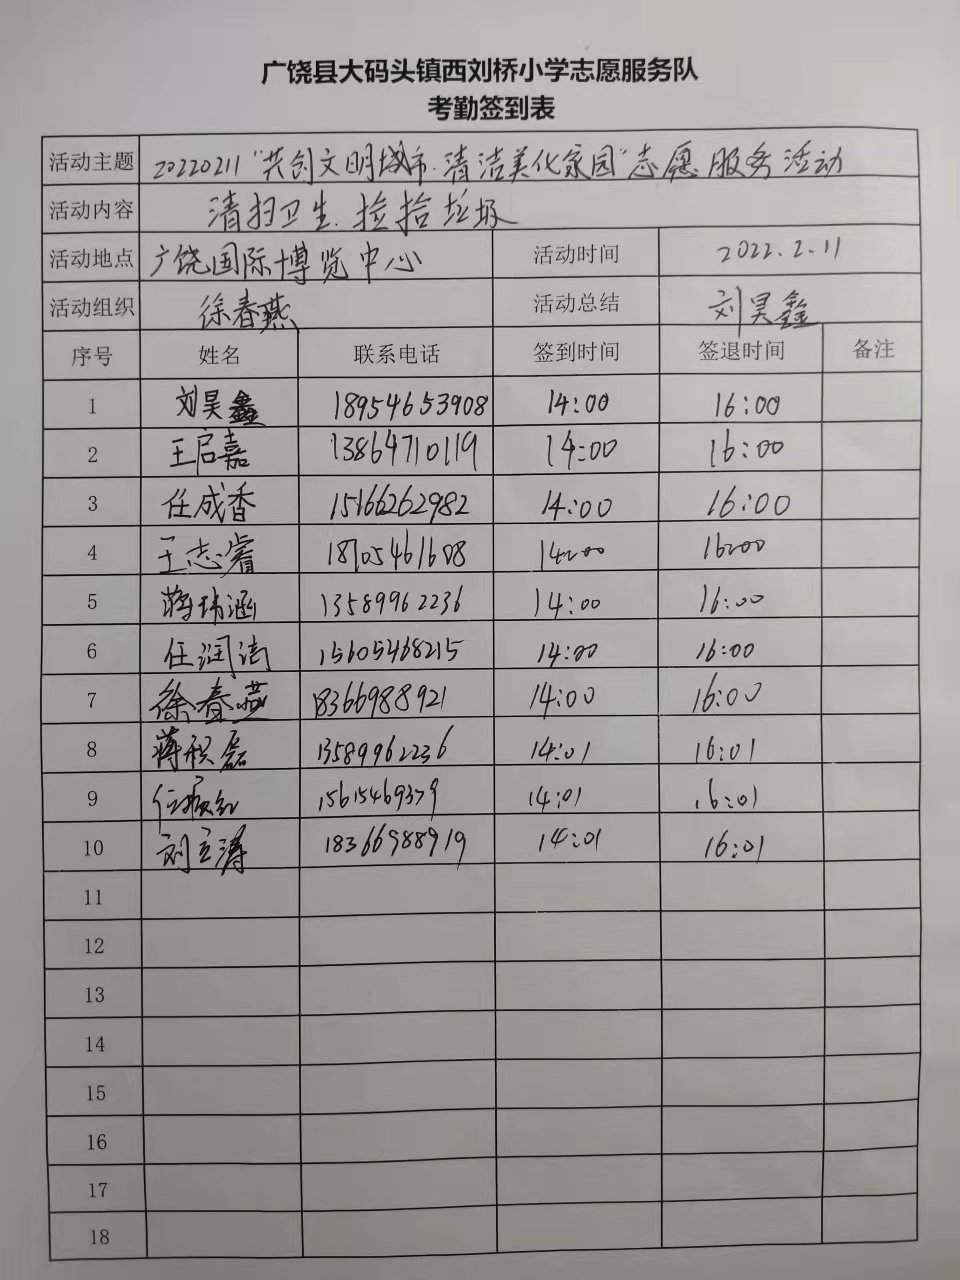 广饶县大码头镇西刘桥小学志愿服务队
考勤签到表
活动主题 20220211“共创文明城市.清洁美化家园”志愿服务活动
活动内容 清扫卫生.捡拾垃圾
活动地点 广饶国际博览中心 活动时间 2022.2.11
活动组织 徐春燕 活动总结 刘昊鑫
序号 姓名 联系电话 签到时间 签退时间 备注
1 刘昊鑫 18954653908 14:00 16:00
2 王启嘉 13864710119 14:00 16:00
3 任成香 15166262982 14:00 16:00
4 王志睿 18705461608 14:00 16:00
5 蒋玮涵 13589962236 14:00 16:00
6 任润 15605468215 14:00 16:00
7 徐春燕 18366988921 14:00 16:00
8 蒋积磊 13589962236 14:01 16:01
9 任 15615469379 14:01 16:01
10 刘立涛 18366988919 14:01 16:01
11
12
13
14
15
16
17
18